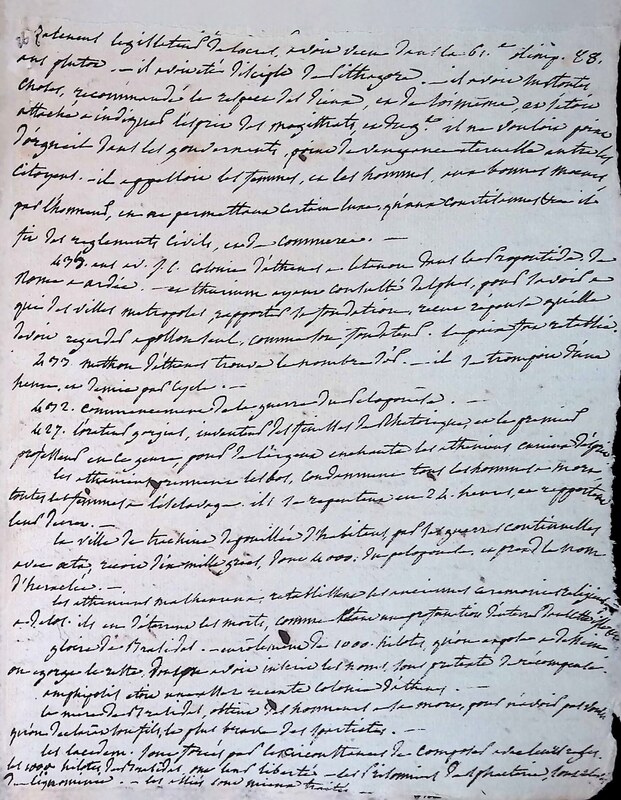 Zaleucus legislateur de locres, avoit vecu dans la 61.e olimp. 88.
ans plutot — il avoit été disciple de Pithagore. — il avoit sur toutes
choses, recommandé le respect des dieux, et de soi même,
attaché a indiquer l'esprit des magistrats, il ne vouloit point
d'orgueil dans les gouvernements, point de vengeance eternelle entre les
citoyens. — il appelloit les femmes, et les hommes, aux bonnes moeurs
par l'honneur, en ne permettant certain luxe, qu'aux courtisannes il
fit des reglements civils, et de commerce. —
ans av. J.C. colonie d'athenes a letanon dans la Propontide, de
Rome a ardée. — les thuriens ayant consulté delphes, pour savoir a
qui des villes metropoles, rapporter la fondation, recut réponse qu'elle
devoit regarder apollon seul, comme son fondateur. la paix fut retablie.
433 methon d'athenes trouve le nombre d'or — il se trompoit d'une
heure, et demie par cycle. —
432. commencement de la guerre du Peloponese. —
427. l'orateur gorgias, inventeur des feuilles de Rhetorique, et le premier
professeur en ce genre, pour de l'argent enchante les atheniens curieux d'esprit
les atheniens prennent lesbos, condamnent tous les hommes a mort
toutes les femmes a l'esclavage. ils se repentent en 24 heures, et rapportent
leur decret. —
la ville de trachine depouillée d'habitans, par les guerres continuelles
avec oeta, recoit dix mille grecs, dont 4000. du peloponese, et prend le nom
d'heraclée. —
les atheniens malheureux, retablissent les anciennes ceremonies religieuses
a delos. ils en deterrent les morts, comme etant une profanation
gloire de Brasidas. — enrolement de 1000. hilotes, qu'on
on egorge le reste, dont on avoit inscrit les noms, sous pretexte de récompense.
amphipolis etoit une recente colonie d'athenes. —
la mere de Brasidas, obtint des honneurs a sa mort, pour n'avoir pas voulu
qu'on declarat son fils, le plus brave des spartiates. —
les lacedem. sont forcés par les circonstances de composer avec leurs
les 1000 hilotes, de Brasidas, ont leur liberté — les Prisonniers de sphacterie, sont
de l'ignominie. — les alliés sont mieux traités —